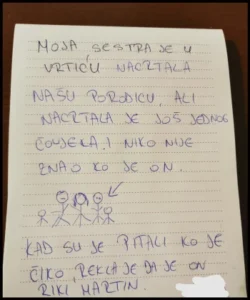 MOJA SESTRA JE U
VRTIĆU NACRTALA
NAŠU PORODICU, ALI
NACRTALA JE JOŠ JEDNOG
ČOVJEKA, I NIKO NIJE
ZNAO KO JE ON.
KAD SU JE PITALI KO JE
ČIKO, REKLA JE DA JE ON
RIKI MARTIN.